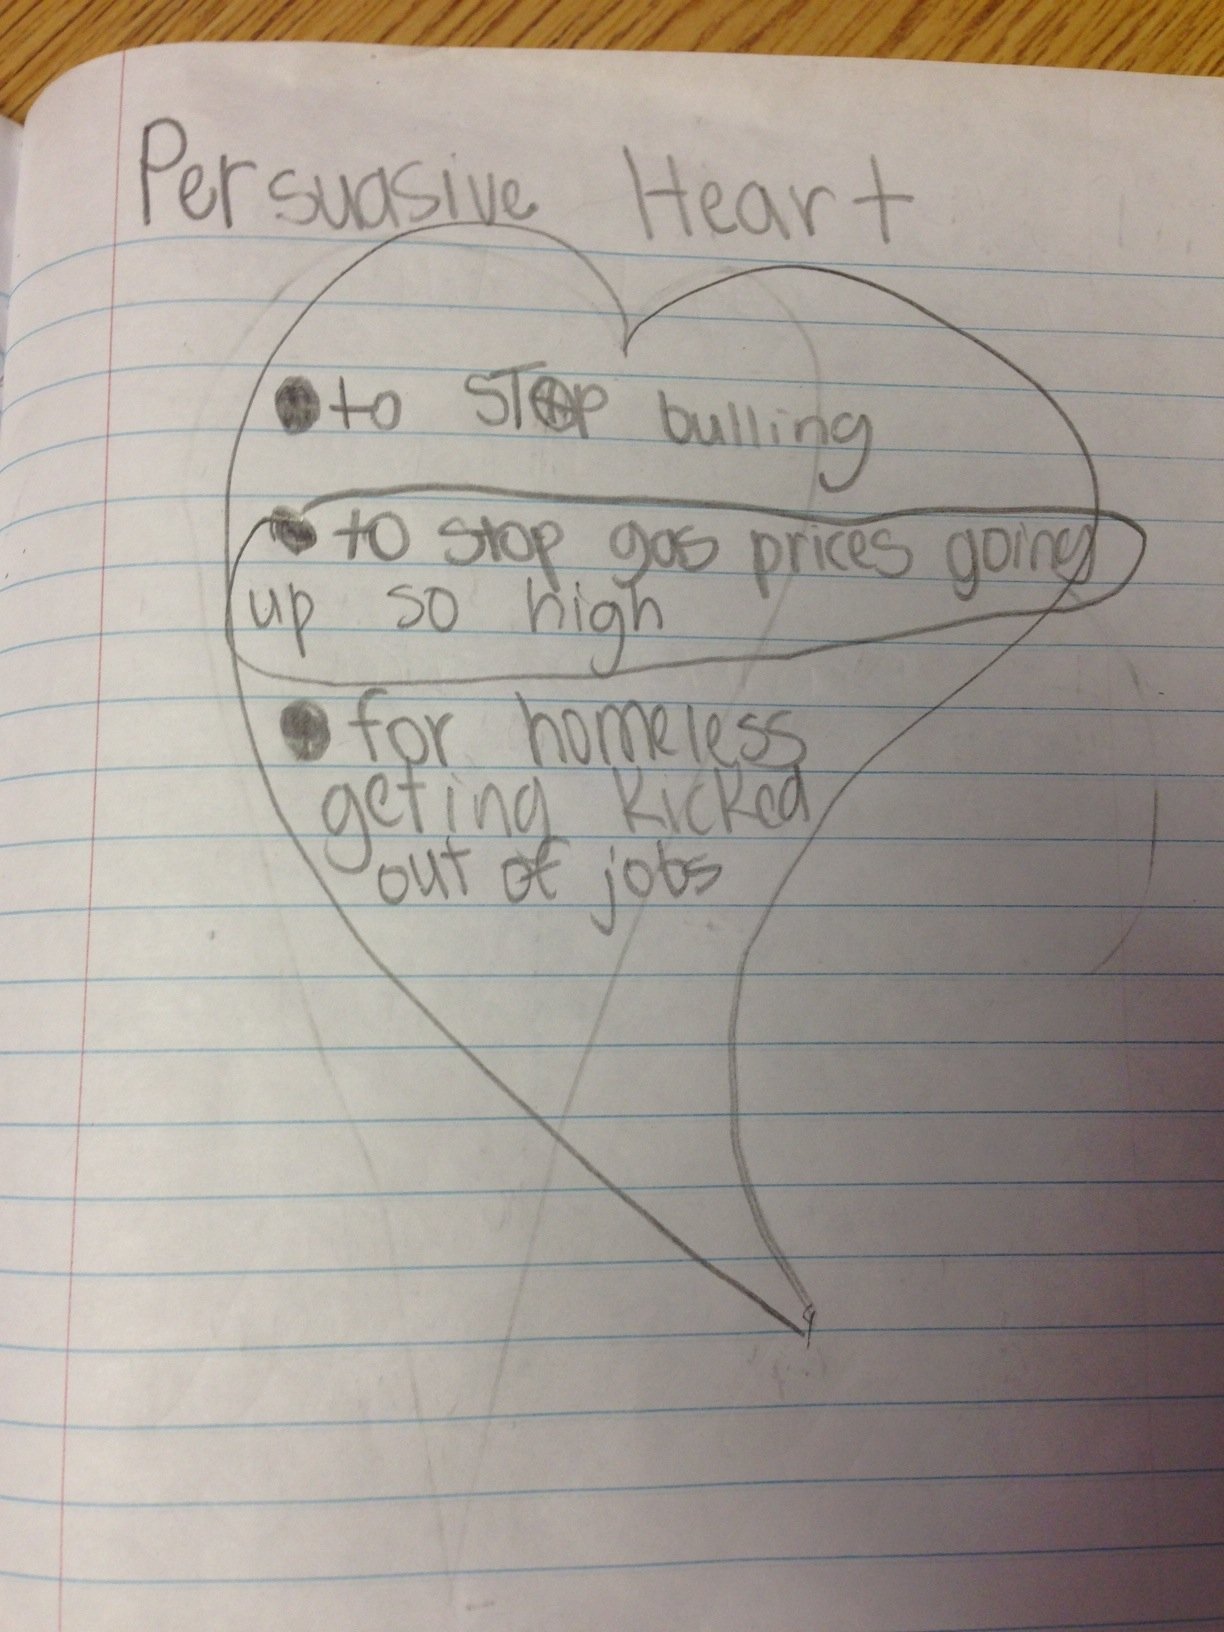 Persuasive Heart
to STOP bulling
to stop gas prices going
up so high
for homeless
geting kicked
out of jobs